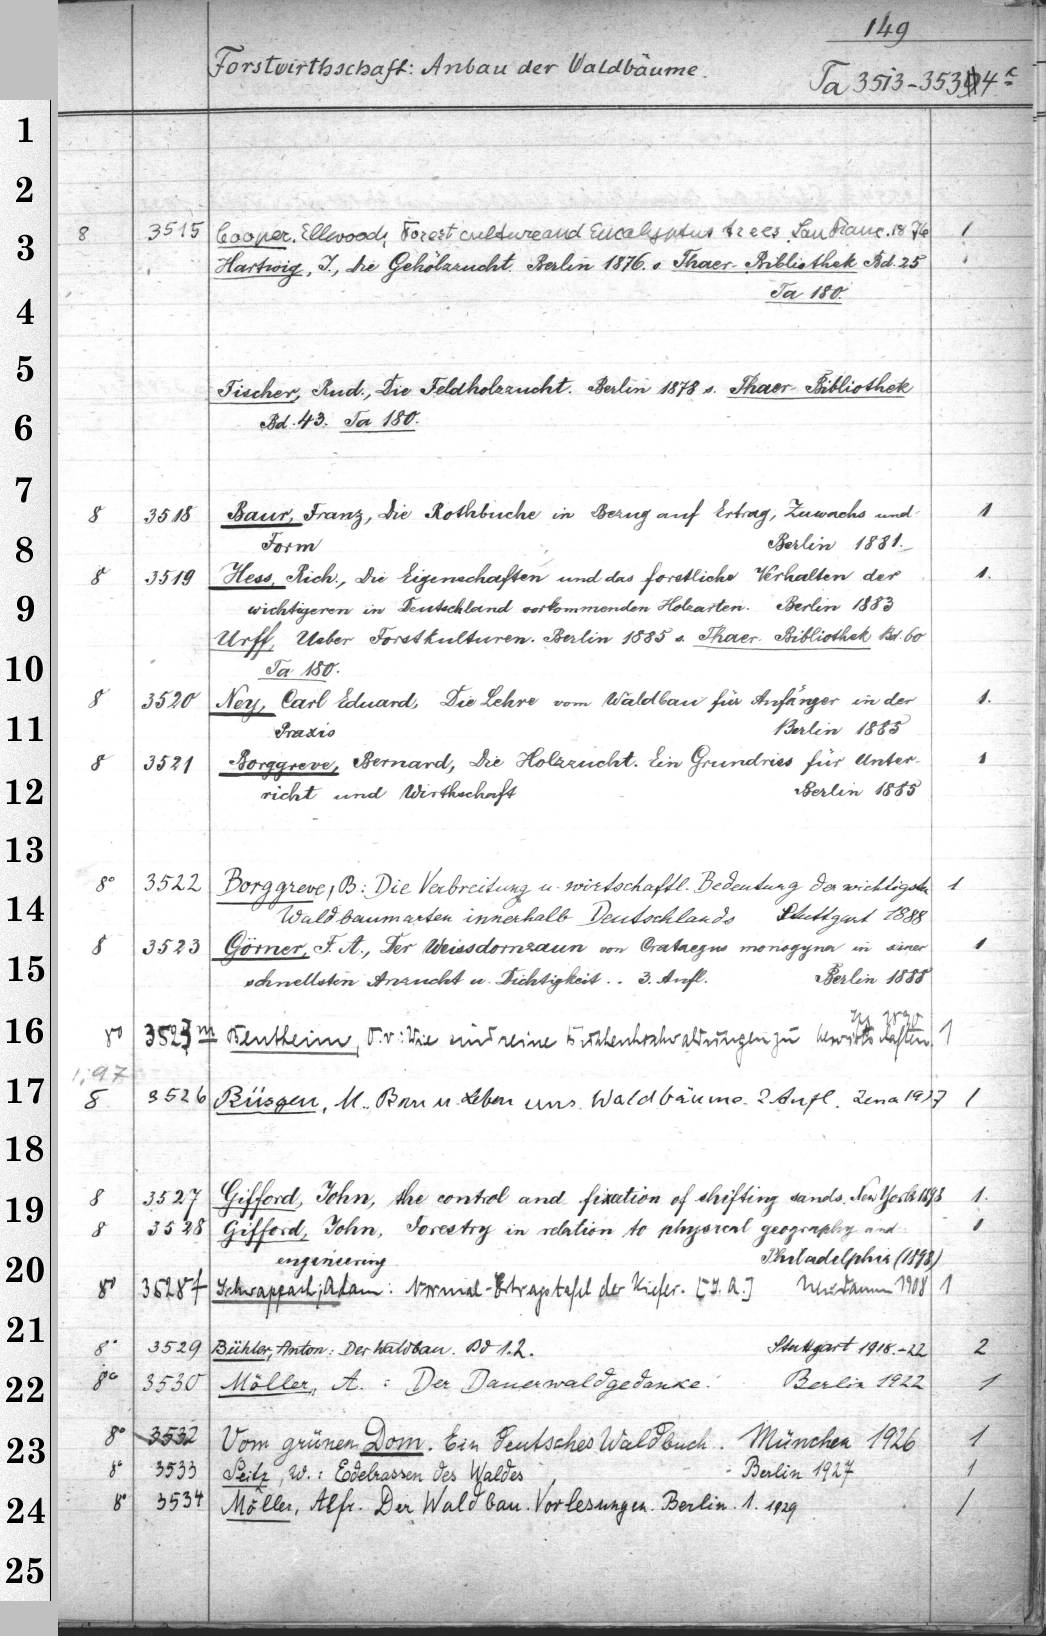 149
Forstwirthschaft: Anbau der Waldbäume.
Ta 3513-3534
1
2
3
8 3515 Cooper, Ellwood, Forest culture and Eucalyptus trees. San Franc. 1876 1
Hartwig, J., die Gehölzzucht. Berlin 1876. s. Thaer-Bibliothek Bd. 25
4
Ta 180.
5
Fischer, Rud., Die Feldholzzucht. Berlin 1878 s. Thaer-Bibliothek
6
Bd. 43. Ta 180.
7
8 3518 Baur, Franz, Die Rothbuche in Bezug auf Ertrag, Zuwachs und 1
8
Form Berlin 1881.
8 3519 Hess, Rich., Die Eigenschaften und das forstliche Verhalten der 1.
9
wichtigeren in Deutschland vorkommenden Holzarten. Berlin 1883
Urff, Ueber Forstkulturen. Berlin 1885 s. Thaer-Bibliothek Bd. 60
10
Ta 180.
8 3520 Ney, Carl Eduard, Die Lehre vom Waldbau für Anfänger in der 1.
11
Praxis Berlin 1885
8 3521 Borggreve, Bernard, Die Holzzucht. Ein Grundriss für Unter- 1
12
richt und Wirthschaft Berlin 1885
13
8° 3522 Borggreve, B: Die Verbreitung u. wirtschaftl. Bedeutung der wichtigsten 1
14
Waldbaumarten innerhalb Deutschlands Stuttgart 1888
8 3523 Görner, F. A., Der Weissdornzaun von Crataegus monogyna in seiner 1
15
schnellsten Anzucht u. Dichtigkeit.. 3. Aufl. Berlin 1888
16
8° 3523m Bentheim, O. v: Wie sind reine zu bewirtschaften. 1
17
8 3526 Büsgen, M., Bau u. Leben uns. Waldbäume. 2 Aufl. Jena 1927 1
18
19
8 3527 Gifford, John, the control and fixation of shifting sands. New York 1898 1.
8 3528 Gifford, John, Forestry in relation to physical geography and 1
20
engineering Philadelphia (1898)
8° 3528f Schwappach, Adam: Normal-Ertragstafel der Kiefer. [S. A.] Neudamm 1908 1
21
8° 3529 Bühler, Anton: Der Waldbau. Bd 1.2. Stuttgart 1918.-22 2
22
8° 3530 Möller, A. : Der Dauerwaldgedanke. Berlin 1922 1
23
8° 3532 Vom grünen Dom. Ein deutsches Waldbuch. München 1926 1
8° 3533 Seitz, W.: Edelrassen des Waldes Berlin 1927 1
24
8° 3534 Möller, Alfr. Der Waldbau. Vorlesungen. Berlin. 1. 1929 1
25